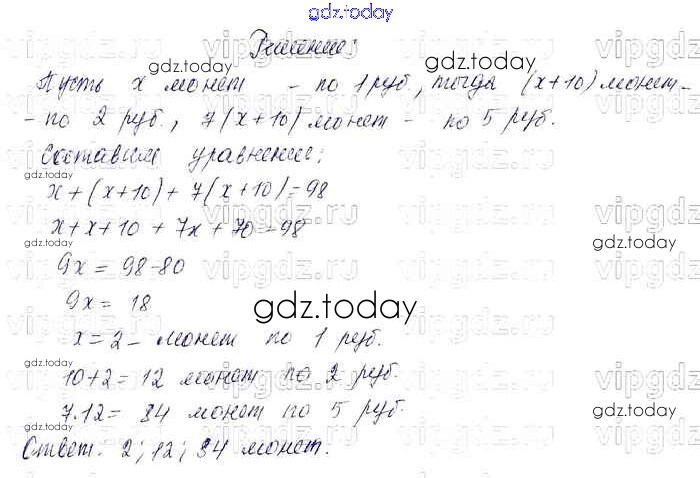 gdz.today
Решение:
Пусть x монет - по 1 руб, тогда (x+10) монет -
- по 2 руб., 7(x+10) монет - по 5 руб.
Составим уравнение:
x+(x+10)+7(x+10)=98
x+x+10+7x+70=98
9x = 98-80
9x = 18
x=2- монет по 1 руб.
10+2=12 монет по 2 руб.
7.12= 84 монет по 5 руб.
Ответ. 2; 12; 84 монет.
gdz.today
gdz.today
gdz.today
gdz.today
gdz.today
gdz.today
gdz.today
gdz.today
gdz.today
gdz.today
vipgdz.ru
vipgdz.ru
vipgdz.ru
vipgdz.ru